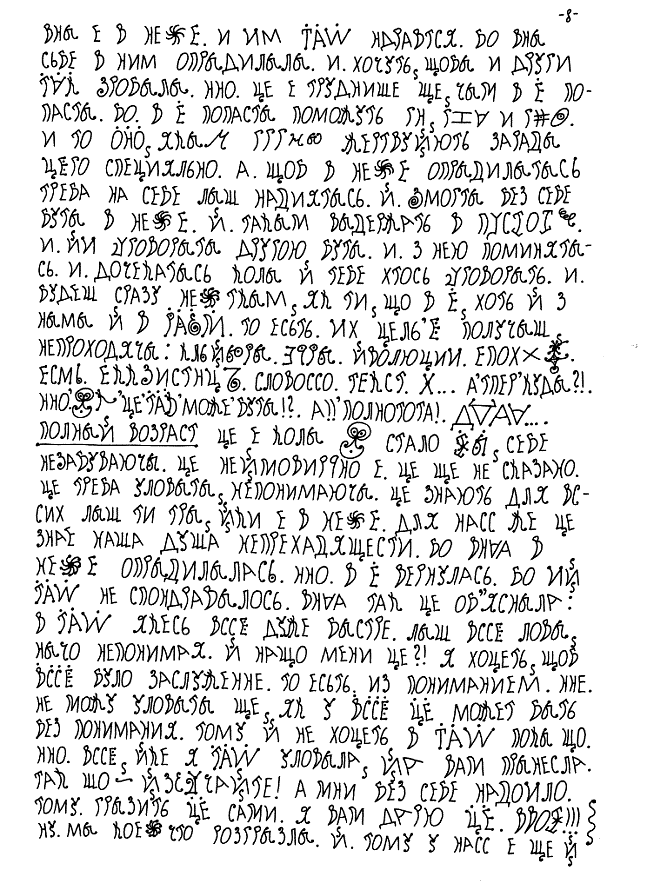 -8-
ВНЫ Е В НЕ Е. И ИМ ТАW НДРАВТСЯ. БО ВНЫ
СЬБЕ В НИМ ОПРЫДИЛЫЛЫ. И. ХОЧУТЬ, ЩОБЫ И ДРУГИ
ТАК ЗРОБЫЛЫ. ННО. ЦЕ Е ТРУДНИШЕ ЩЕ, ЧЫМ В Ё ПО-
ПАСТЫ. БО. В Ё ПОПАСТЫ ПОМОЖУТЬ И
И ТО ОНО, ЯКЫМ ЖЕРТВУЙЮТЬ ЗАРАДЫ
ЦЕГО СПЕЦИЯЛЬНО. А. ЩОБ В НЕ Е ОПРЫДИЛЫТЫСЬ
ТРЕБА НА СЕБЕ ЛЫШ НАДИЯТЫСЬ. Й. ЗМОГТЫ БЕЗ СЕБЕ
БУТЫ В НЕ Е. Й. ТАКЫМ ВЫДЕРЖАТЬ В
И. ЙИ УГОВОРЫТЫ ДРУГОЮ БУТЫ. И. З НЕЮ ПОМИНЯТЫ-
СЬ. И. ДОЧЕКАТЫСЬ КОЛЫ Й ТЕБЕ ХТОСЬ УГОВОРЫТЬ. И.
БУДЕШ СРАЗУ НЕ ТКЫМ, ЯК ТИ, ЩО В Ё, ХОТЬ Й З
НЫМЫ Й В ТО ЕСЬТЬ. ИХ ЦЕЛЬ Е ПОЛУЧЫШ,
НЕПРОХОДЯЧЫ: ЙВОЛЮЦИИ. ЕПОХ
ЕСМЬ. СЛОВОССО. ТЕКСТ. Х... КУДЫ?!.
ННО. ЦЕ ТАК МОЖЕ БУТЫ!?. А!! ПОЛНОТОТА!.
ПОЛНЫЙ ВОЗРАСТ ЦЕ Е КОЛЫ СТАЛО СЕБЕ
НЕЗАБУВАЮЧЫ. ЦЕ НЕЙМОВИРНО Е. ЦЕ ЩЕ НЕ СКАЗАНО.
ЦЕ ТРЕБА УЛОВЫТЫ, НЕПОНИМАЮЧЫ. ЦЕ ЗНАЮТЬ ДЛЯ ВС-
СИХ ЛЫШ ТИ ТРЫ, ЙКИ Е В НЕ Е. ДЛЯ НАСС ЖЕ ЦЕ
ЗНАЕ НАША ДУША НЕПРЕХАДЯЩЕСТИ. БО ВНАА В
НЕ Е ОПРЫДИЛЫЛАСЬ. ННО. В Ё ВЕРНУЛАСЬ. БО ИЙ
ТАW НЕ СПОНДРАВЫЛОСЬ. ВНАА ТАК ЦЕ ОБ"ЯСНЫЛА:
В ТАW ЯКЕСЬ ВССЁ ДУЖЕ БЫСТРЕ. ЛЫШ ВССЕ ЛОВЫ,
НЫЧО НЕПОНИМАЯ. Й НАЩО МЕНИ ЦЕ?! Я ХОЦЕТЬ, ЩОБ
ВССЁ БУЛО ЗАСЛУЖЕННЕ. ТО ЕСЬТЬ. ИЗ ПОНИМАНИЕМ. ННЕ.
НЕ МОЖУ УЛОВЫТЫ ЩЕ, ЯК У ВССЁ ЦЁ МОЖЕТ БЫТЬ
БЕЗ ПОНИМАНИЯ. ТОМУ Й НЕ ХОЦЕТЬ В ТАW ПОКЫ ЩО.
ННО. ВССЕ, ЙКЕ Я ТАW УЛОВЫЛА, ВАМ ПРЫНЕСЛА.
ТАК ЩО — ЙЗУЧАЙТЕ! А МНИ БЕЗ СЕБЕ НАДОИЛО.
ТОМУ. ГРЫЗИТЬ ЦЁ САМИ. Я ВАМ ДАРЮ ЦЁ.
НУ. МЫ КОЕ ЧТО РОЗГРЫЗЛЫ. Й. ТОМУ У НАСС Е ЩЕ Й